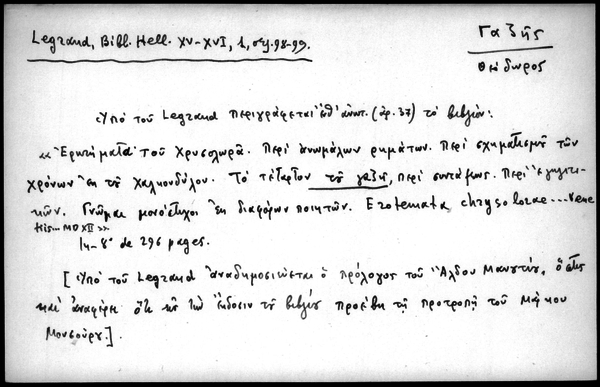 Legrand, Bibl. Hell. XV-XVI, 1, σελ. 98-99.
Γαζῆς
Θεόδωρος
Ὑπὸ τοῦ Legrand περιγράφεται (ἀρ. 37) τὸ βιβλίον:
«Ἐρωτήματα τοῦ Χρυσολωρᾶ. Περὶ ἀνωμάλων ρημάτων. Περὶ σχηματισμοῦ τῶν
χρόνων ἐκ τοῦ Χαλκονδύλου. Τὸ τέταρτον τοῦ γαζῆ, περὶ συντάξεως. Περὶ ἐγκλιτι-
κῶν. Γνῶμαι μονόστιχοι ἐκ διαφόρων ποιητῶν. Erotemata chrysolorae... Vene
tiis... MDXII»
In-8° de 296 pages.
[Ὑπὸ τοῦ Legrand ἀναδημοσιεύεται ὁ πρόλογος τοῦ Ἄλδου Μανουτίου, ὅστις
καὶ ἀναφέρει ὅτι εἰς τὴν ἔκδοσιν τοῦ βιβλίου προέβη τῇ προτροπῇ τοῦ Μάρκου
Μουσούρου.]